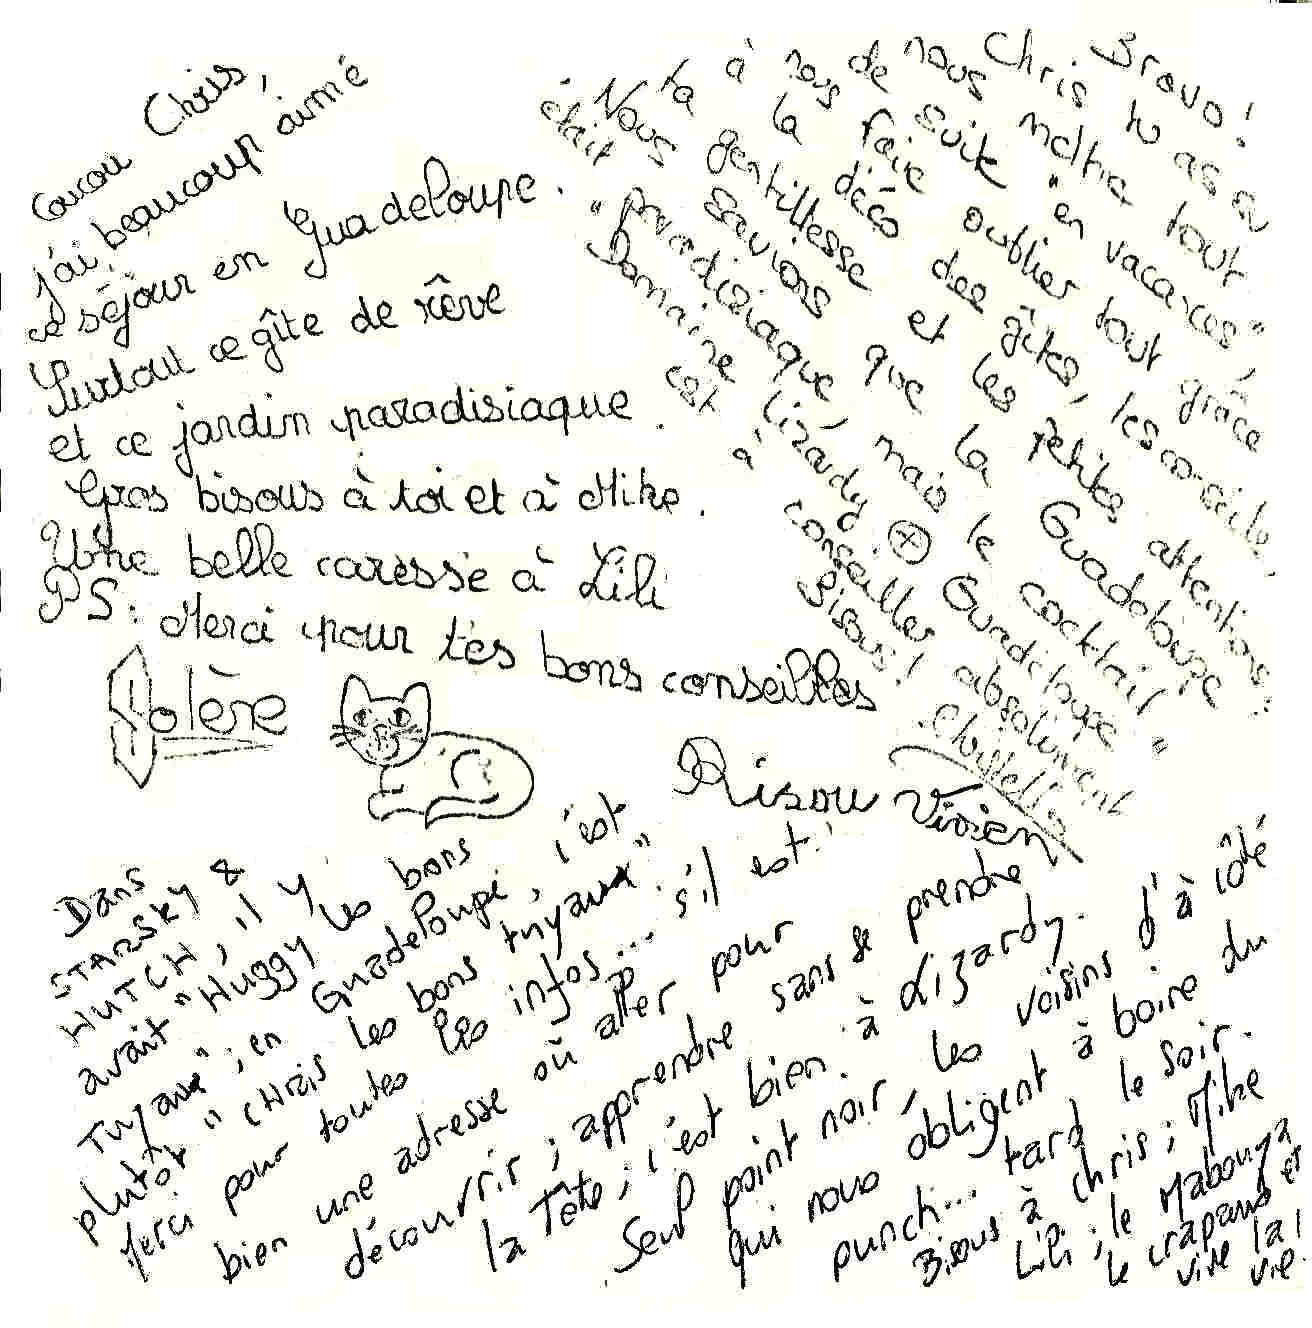 Coucou Chris,
j'ai beaucoup aimé
ce séjour en Guadeloupe.
Surtout ce gîte de rêve
et ce jardin paradisiaque.
Gros bisous à toi et à Mike.
Une belle caresse à Lili
PS: Merci pour tes bons conseilles
Solène
Bisou Vivien
Bravo!
Chris tu as su
nous mettre tout
de suite "en vacances",
à nous faire oublier tout grâce à
la déco des gîtes, les conseils,
ta gentillesse et les petites attentions.
Nous savions que la Guadeloupe
était "paradisiaque, mais le cocktail"
"Domaine Lizardy ⊗ Guadeloupe"
est à conseiller absolument
Bisous!
Dans
STARSKY &
HUTCH, il y
avait "Huggy les bons
Tuyaux"; en Guadeloupe, c'est
plutôt "CHRIS les bons tuyaux"
Merci pour toutes les infos... s'il est
bien une adresse où aller pour
découvrir; apprendre sans se prendre
la Tête; c'est bien à Lizardy.
Seul point noir, les voisins d'à côté
qui nous obligent à boire du
punch... tard le soir.
Bisous à chris; Mike
Lili; le Mabouya
le crapaud et
vive la
vie!